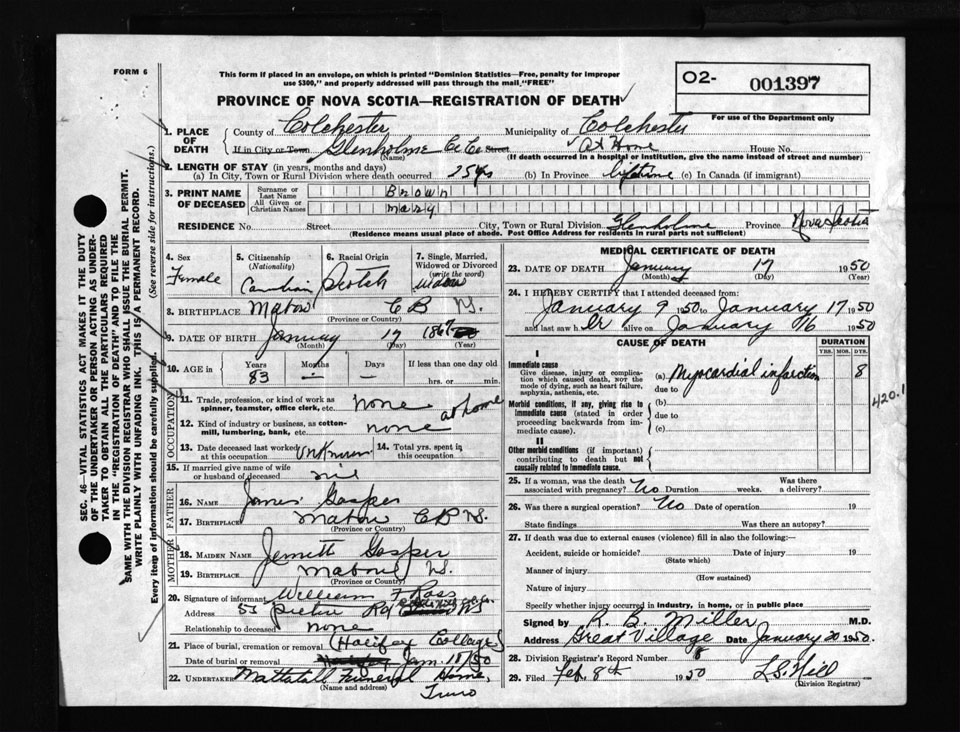 FORM 6
This form if placed in an envelope, on which is printed "Dominion Statistics—Free, penalty for improper
use $300," and properly addressed will pass through the mail "FREE"
O2- 001397
PROVINCE OF NOVA SCOTIA—REGISTRATION OF DEATH
For use of the Department only
1. PLACE OF DEATH County of Colchester Municipality of Colchester
If in City or Town Glenholme Co Street At Home House No.
(Name) (If death occurred in a hospital or institution, give the name instead of street and number)
2. LENGTH OF STAY (in years, months and days)
(a) In City, Town or Rural Division where death occurred 25 yrs (b) In Province lifetime (c) In Canada (if immigrant)
3. PRINT NAME OF DECEASED Surname or Last Name Brown
All Given or Christian Names Mary
RESIDENCE No. Street City, Town or Rural Division Glenholme Province Nova Scotia
(Residence means usual place of abode. Post Office Address for residents in rural parts not sufficient)
4. Sex Female
5. Citizenship (Nationality) Canadian
6. Racial Origin Scotch
7. Single, Married, Widowed or Divorced (write the word) widow
8. BIRTHPLACE Mabou C B N.S.
(Province or Country)
9. DATE OF BIRTH January 17 1867
(Month) (Day) (Year)
10. AGE in Years Months Days If less than one day old
83 – – hrs. or min.
OCCUPATION
11. Trade, profession, or kind of work as spinner, teamster, office clerk, etc. none at home
12. Kind of industry or business, as cotton-mill, lumbering, bank, etc. none
13. Date deceased last worked at this occupation unknown
14. Total yrs. spent in this occupation
15. If married give name of wife or husband of deceased nil
FATHER
16. NAME James Gasper
17. BIRTHPLACE Mabou C B N.S.
(Province or Country)
MOTHER
18. MAIDEN NAME Gasper
19. BIRTHPLACE Mabou N.S.
(Province or Country)
20. Signature of informant William F Ross
Address 53 Pictou Rd N.S.
Relationship to deceased none
21. Place of burial, cremation or removal Halifax College
Date of burial or removal Jan. 18/50
22. UNDERTAKER Mattatall Funeral Home,
(Name and address) Truro
MEDICAL CERTIFICATE OF DEATH
23. DATE OF DEATH January 17 1950
(Month) (Day) (Year)
24. I HEREBY CERTIFY that I attended deceased from:
January 9 1950 to January 17 1950
and last saw her alive on January 16 1950
CAUSE OF DEATH
DURATION
YRS. MOS. DYS.
I
Immediate cause
Give disease, injury or complication which caused death, not the mode of dying, such as heart failure, asphyxia, asthenia, etc.
(a) Myocardial infarction 8
due to
420.1
Morbid conditions, if any, giving rise to immediate cause (stated in order proceeding backwards from immediate cause).
(b)
due to
(c)
II
Other morbid conditions (if important) contributing to death but not causally related to immediate cause.
25. If a woman, was the death associated with pregnancy? No Duration weeks. Was there a delivery?
26. Was there a surgical operation? No Date of operation 19
State findings Was there an autopsy?
27. If death was due to external causes (violence) fill in also the following:—
Accident, suicide or homicide? Date of injury 19
(State which)
Manner of injury
(How sustained)
Nature of injury
Specify whether injury occurred in industry, in home, or in public place
Signed by K. B. Miller M.D.
Address Great Village Date January 20 1950.
28. Division Registrar's Record Number 8
29. Filed Feb. 8th 1950 L.S. Hill
(Division Registrar)
SEC. 46—VITAL STATISTICS ACT MAKES IT THE DUTY
OF THE UNDERTAKER OR PERSON ACTING AS UNDER-
TAKER TO OBTAIN ALL THE PARTICULARS REQUIRED
IN THE "REGISTRATION OF DEATH" AND TO FILE THE
SAME WITH THE DIVISION REGISTRAR WHO SHALL ISSUE THE BURIAL PERMIT.
WRITE PLAINLY WITH UNFADING INK. THIS IS A PERMANENT RECORD.
Every item of information should be carefully supplied. (See reverse side for instructions.)